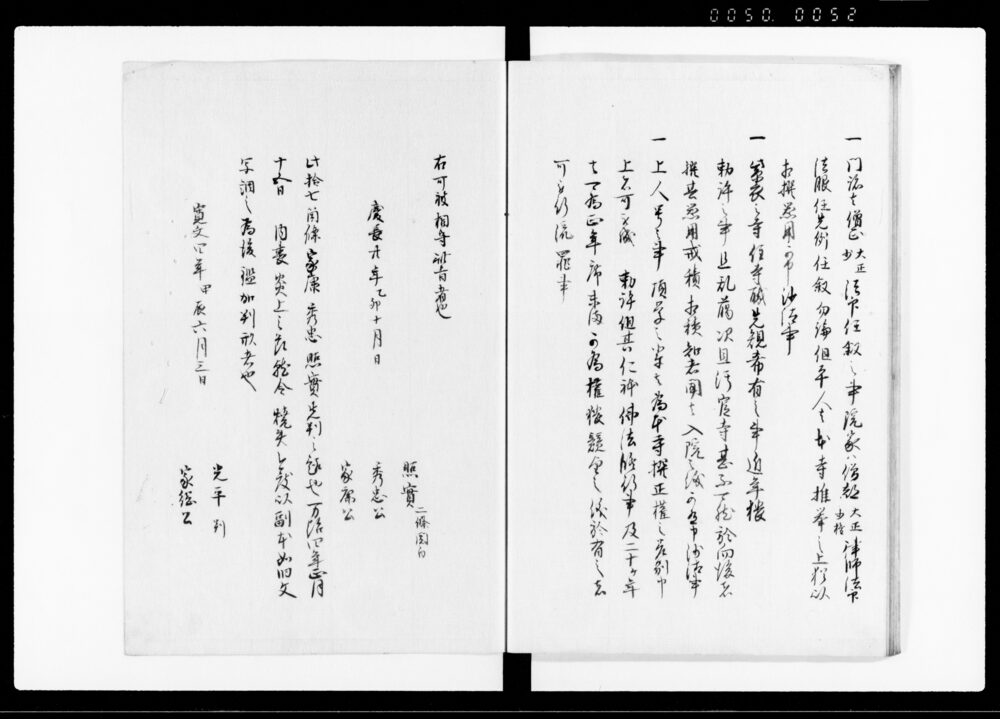 0050. 0052
一 門跡者僧正 大正 少 法印任叙之事院家者僧都 大正 少権 律師法印
法眼任先例任叙勿論但平人者本寺推挙之上猶以
相撰器用可申沙汰事
一 紫衣之寺住寺職先規希有之事近年猥
勅許之事且乱﨟次且汚官寺甚不可然於向後者
撰其器用戒積相積智者聞者入院之儀可有申沙汰事
一 上人号之事碩学之輩者為本寺撰正権之差別申
上者可被成 勅許但其仁躰仏法修行事及二十ヶ年
者可為正年序未満可為権猥競望之儀於有之者
可被行流罪事
右可被相守此旨者也
慶長廿年乙卯十月日
照實 二條関白
秀忠公
家康公
此拾七箇條家康秀忠照實先判之趣也万治四年正月
十五日 内裏炎上之節就令焼失今度以副本如旧文
写調之為後鑑加判形者也
寛文四年甲辰六月三日
光平判
家綱公